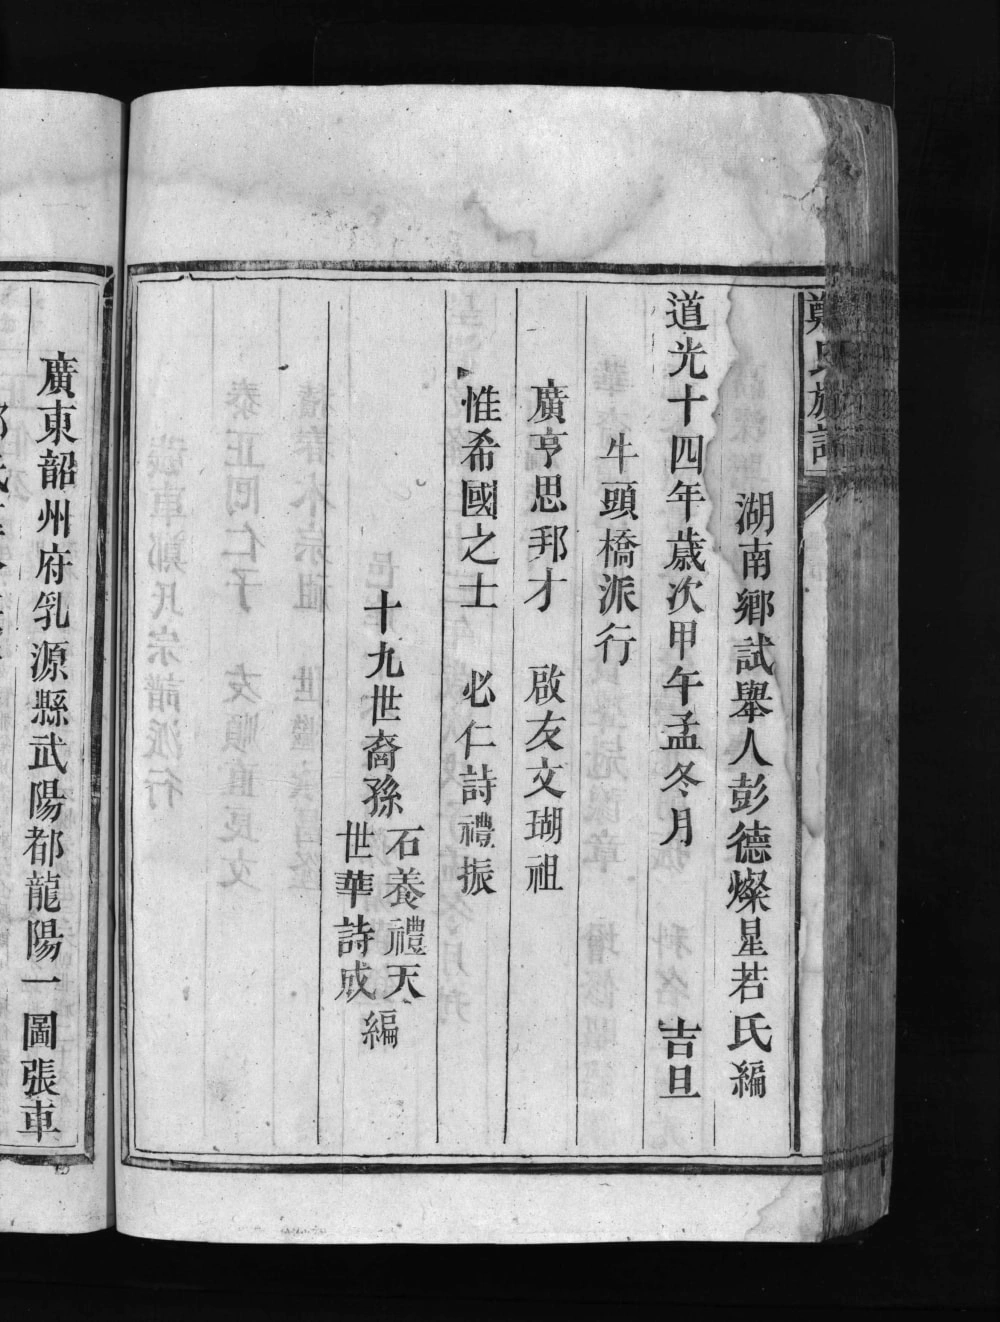 鄭氏族譜
湖南鄉試舉人彭德燦星若氏編
道光十四年歲次甲午孟冬月　吉旦
牛頭橋派行
廣亨思邦才　啟友文瑚祖
惟希國之士　必仁詩禮振
十九世裔孫
石養禮天
世華詩成
編
廣東韶州府乳源縣武陽都龍陽一圖張車